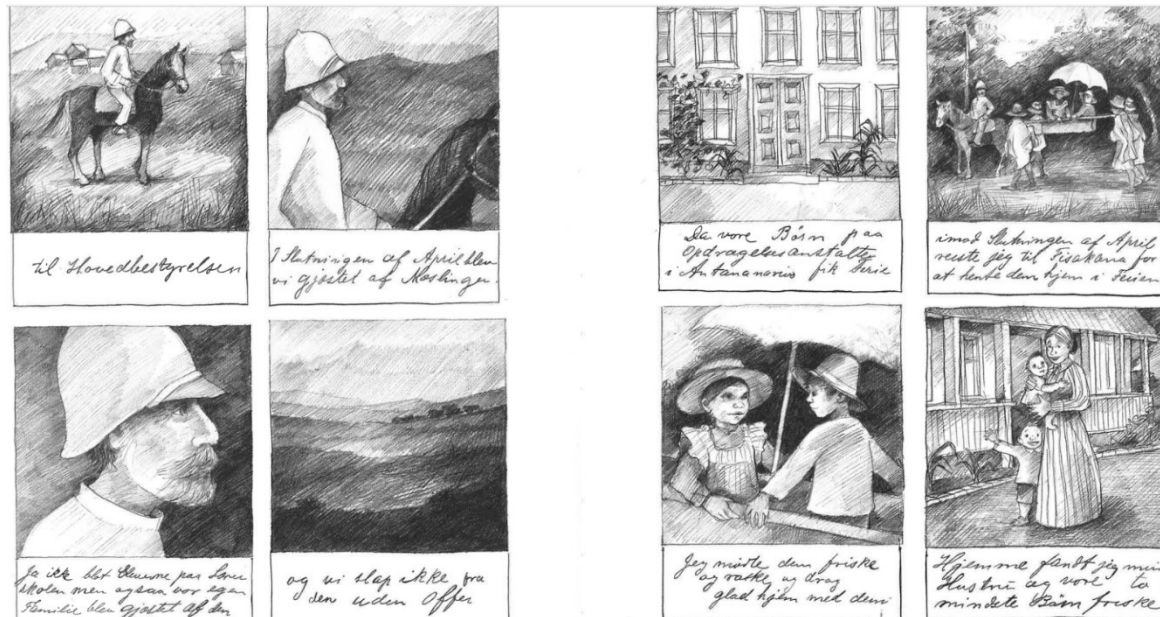 til Hovedbestyrelsen
I Slutningen af April blev
vi gjæstet af Mæslinger.
Ja ikke blot Eleverne paa Lærer
skolen men ogsaa vor egen
Familie blev gjæstet af den
og vi slap ikke fra
den uden Offer
Da vore Børn paa
Opdragelsesanstalten
i Antananarivo fik Ferie
imod Slutningen af April
reiste jeg til Fisakana for
at hente dem hjem i Ferien
Jeg mødte dem friske
og raske og drog
glad hjem med dem
Hjemme fandt jeg min
Hustru og vore to
mindste Børn friske